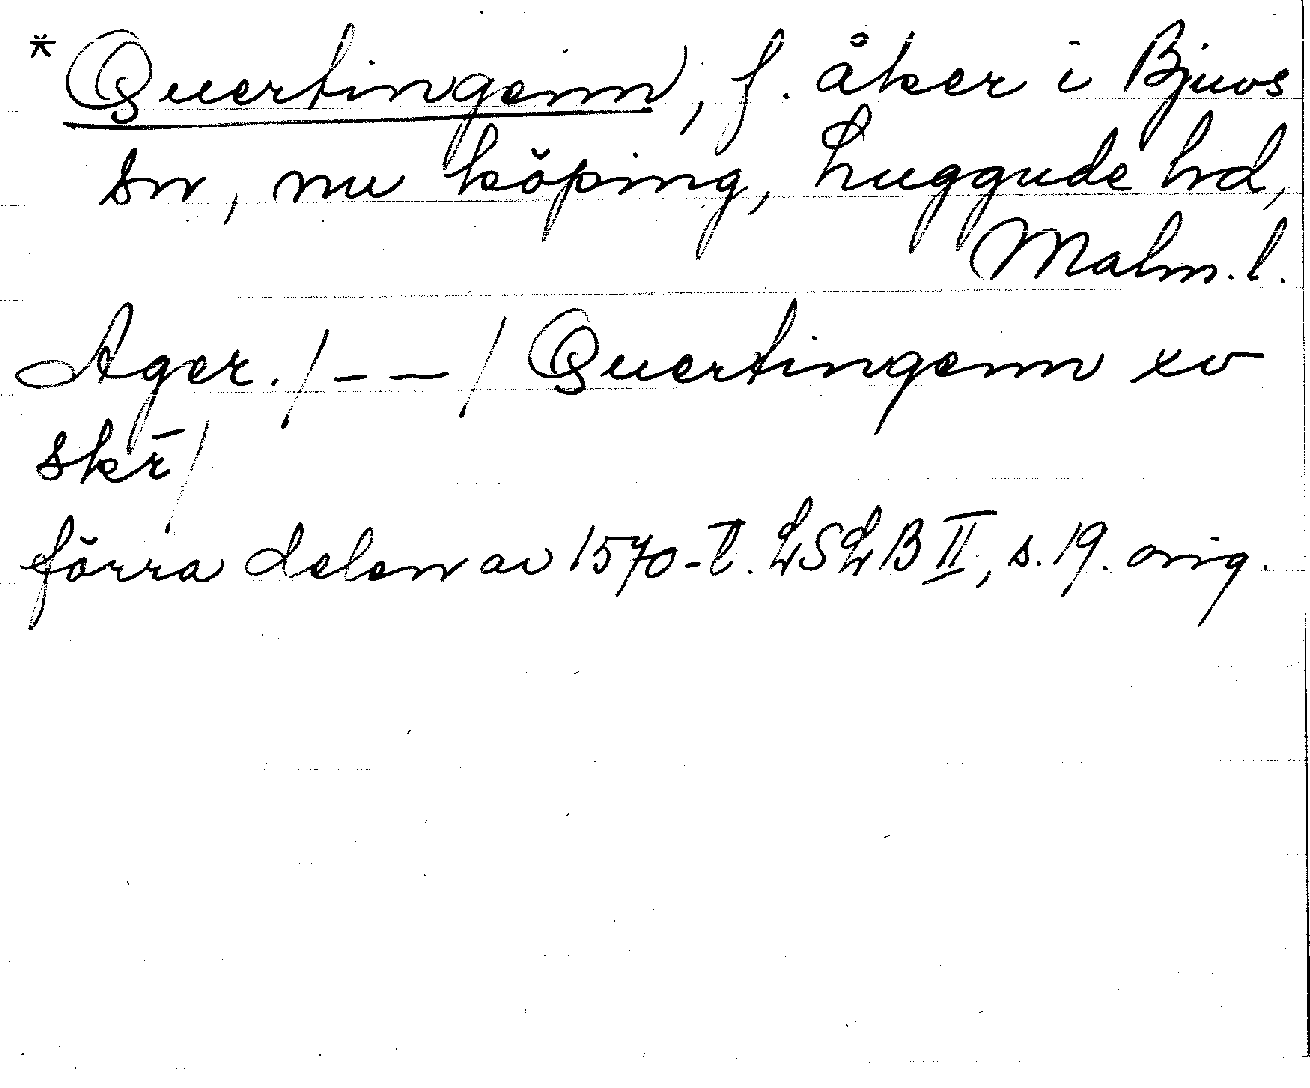 *Quertingenn, f. åker i Bjuvs
sn, nu köping, Luggude hd,
Malm. l.
Ager. /– –/ Quertingenn xv
skr̄/
förra delen av 1570-t. LSLB II, s. 19. orig.